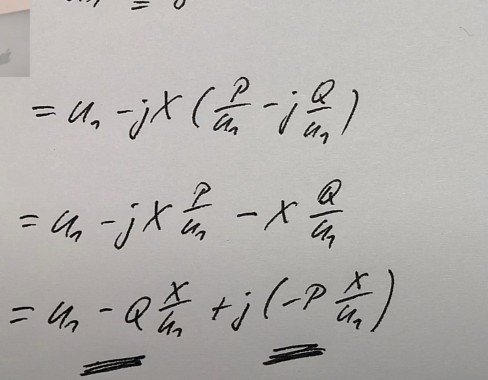 = u₁ - jX ( P/u₁ - j Q/u₁ )
= u₁ - jX P/u₁ - X Q/u₁
= u₁ - Q X/u₁ + j ( -P X/u₁ )